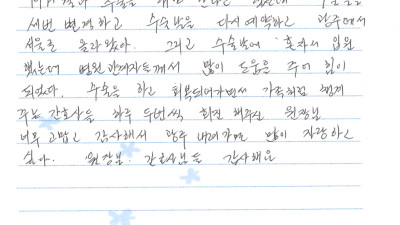 세번 변경하고 수술날을 다시 예약하고 광주에서
서울로 올라왔어. 그리고 수술날에 혼자서 입원
했는데 병원 관계자들께서 많이 도움을 주어 힘이
되었다. 수술을 하고 회복되어가면서 가족처럼 챙겨
주는 간호사들 하루 두번씩 회진 해주신 원장님
너무 고맙고 감사해서 광주 내려가면 많이 자랑하고
싶다. 원장님. 간호사님들 감사해요